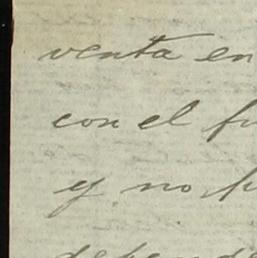 venta en
con el fu
y no p
depende